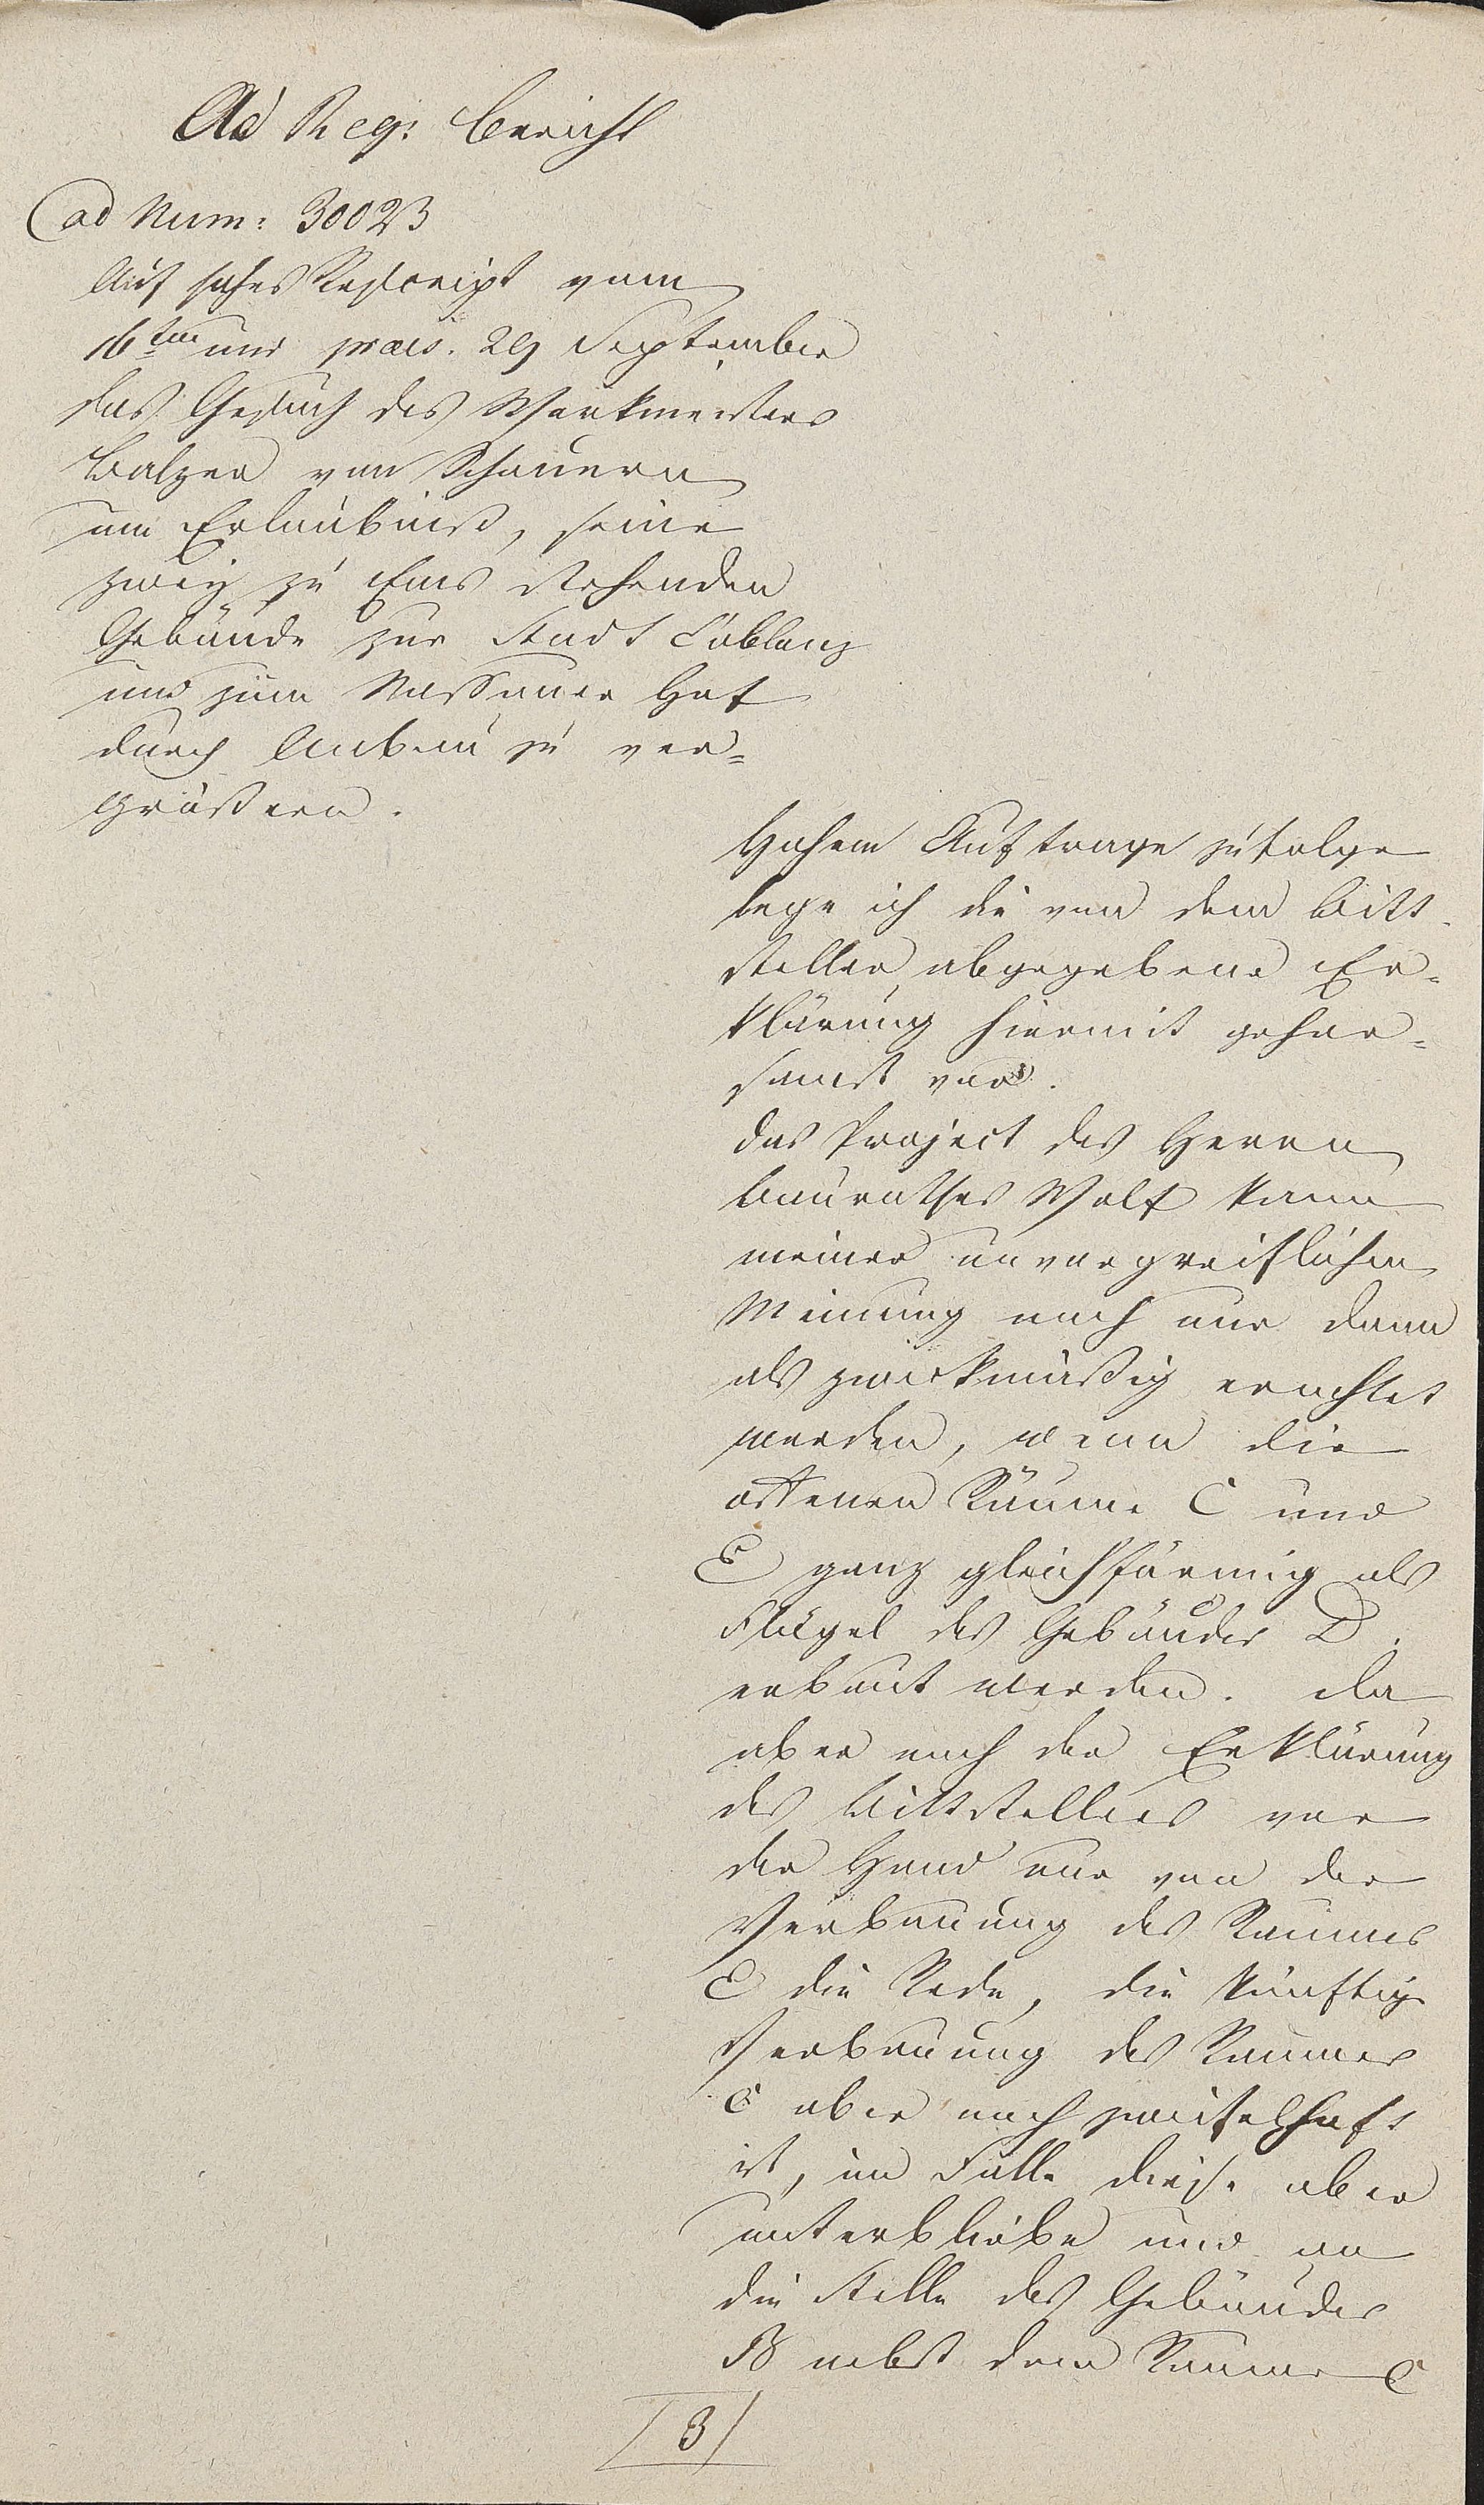 Ad Reg: Bericht
ad Num: 30023
Auf hohes Rescript vom
16ten und praes. 29 September
das Gesuch des Werkmeisters
Balzer von Schauern
um Erlaubniß, seine
zwey zu Ems stehenden
Gebäude zur Stadt Coblenz
und zum Nassauer Hof
durch Anbau zu ver=
größern.
Hohem Auftrage zufolge
lege ich die von dem Bitt-
steller abgegebene Er=
klärung hiermit gehor=
samst vor.
Das Project des Herrn
Baurathes Wolf kann
meiner unvorgreiflichen
Meinung nach nur dann
als zweckmäßig erachtet
werden, wenn die
offenen Räume C und
E ganz gleichförmig als
Flügel des Gebäudes D.
erbaut werden. Da
aber nach der Erklärung
des Bittstellers vor
der Hand nur von der
Verbauung des Raumes
E die Rede, die künftige
Verbauung des Raumes
C aber noch zweifelhaft
ist, im Falle diese aber
unterbliebe und an
die Stelle des Gebäudes
B nebst dem Raume C
3